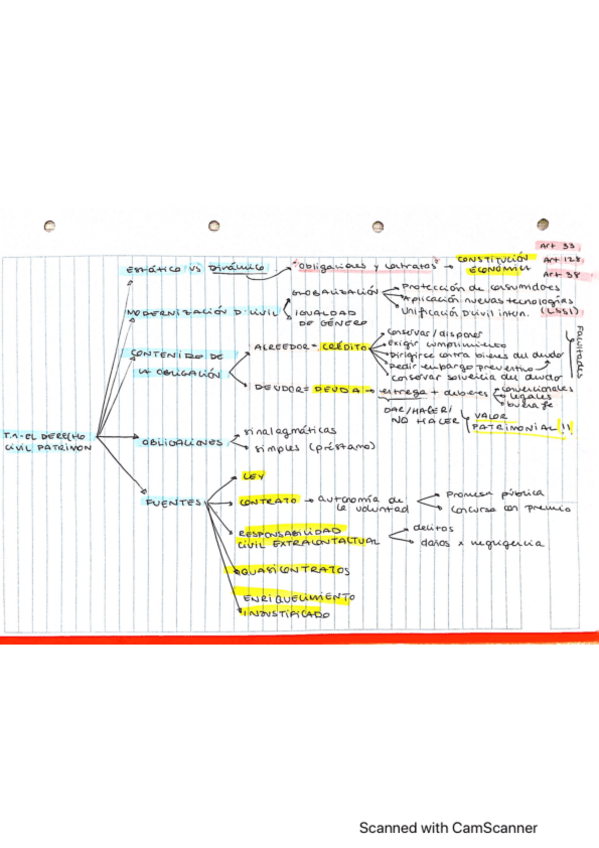 Art 33
Art 128
Art 38
ESTÁTICO VS DINÁMICO
"Obligaciones y contratos"
CONSTITUCIÓN
ECONÓMICA
MODERNIZACIÓN D·CIVIL
GLOBALIZACIÓN
Protección de consumidores
Aplicación nuevas tecnologías
Unificación D'civil intern. (LSSI)
IGUALDAD
DE GÉNERO
CONTENIDO DE
LA OBLIGACIÓN
ACREEDOR = CRÉDITO
conservar/disponer
exigir cumplimiento
Dirigirse contra bienes del deudor
pedir embargo preventivo
conservar solvencia del deudor
Facultades
DEUDOR = DEUDA → entrega + deberes
convencionales
legales
buena fe
DAR/HACER/
NO HACER
VALOR
PATRIMONIAL !!
T.1-EL DERECHO
CIVIL PATRIMON
OBLIGACIONES
sinalagmáticas
simples (préstamo)
FUENTES
LEY
CONTRATO → autonomía de
la voluntad
Promesa pública
concurso con premio
RESPONSABILIDAD
CIVIL EXTRACONTACTUAL
delitos
daños x negligencia
QUASICONTRATOS
ENRIQUECIMIENTO
INJUSTIFICADO
Scanned with CamScanner